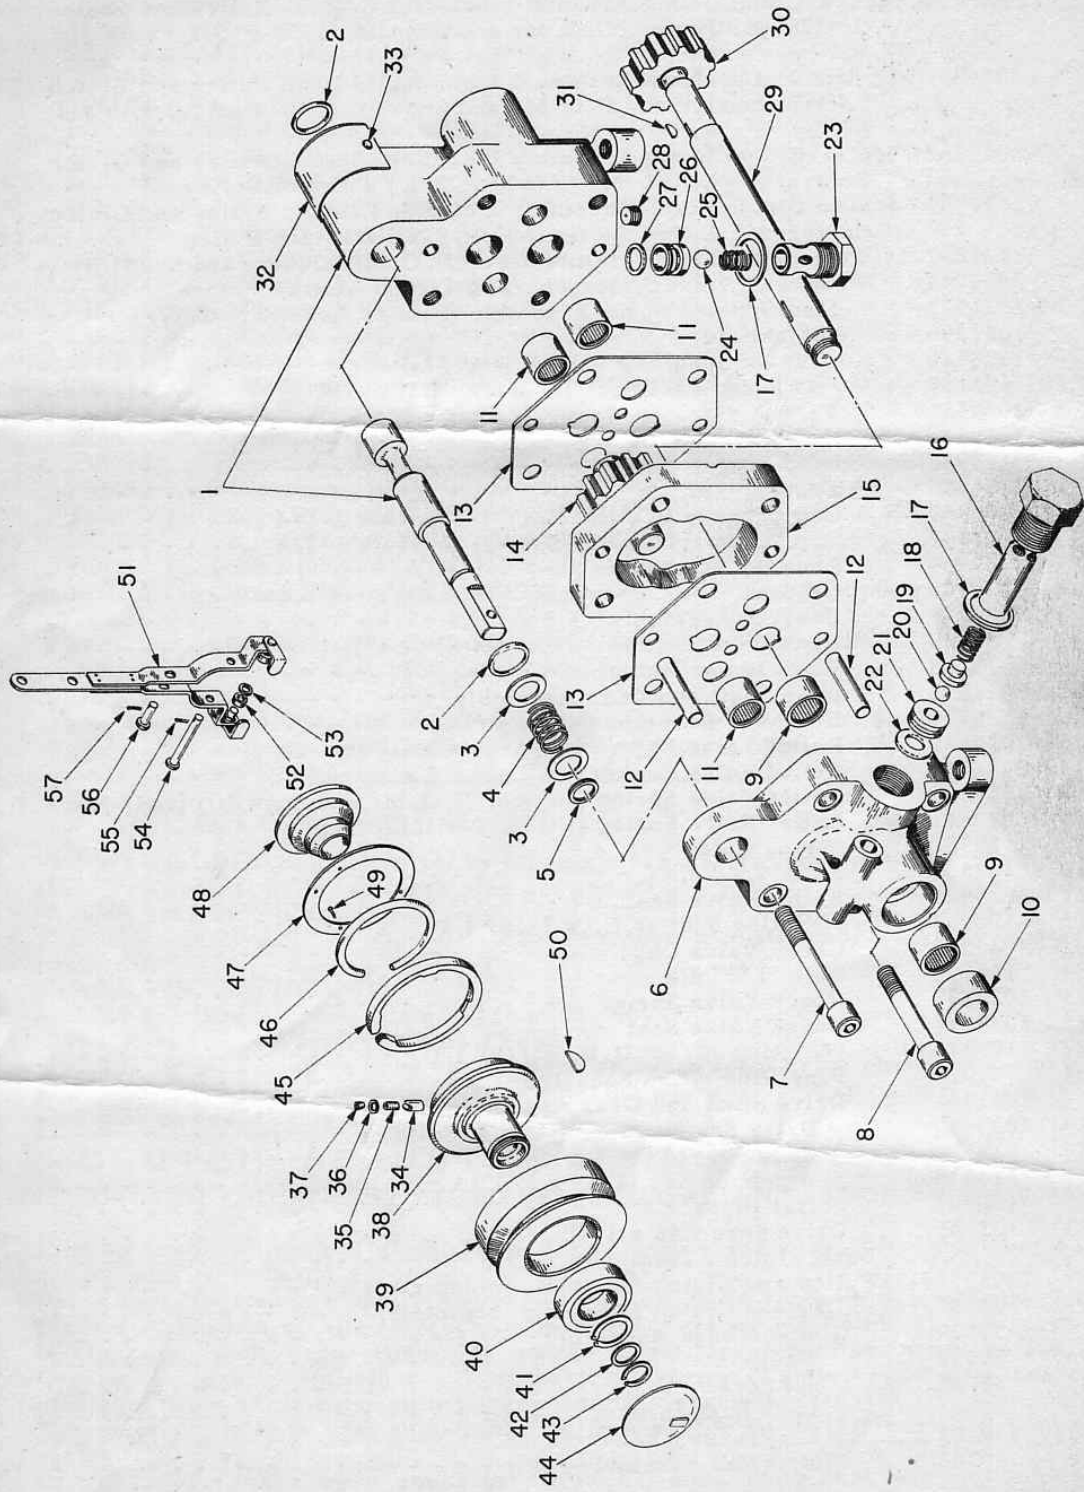 2
33
32
31
30
29
28
27
26
25
24
23
17
11
11
1
13
14
15
16
17
18
19
20
21
22
51
57
56
55
54
53
52
2
3
4
3
5
13
12
12
11
9
48
49
47
46
45
50
6
7
8
9
10
37
36
35
34
38
39
40
41
42
43
44